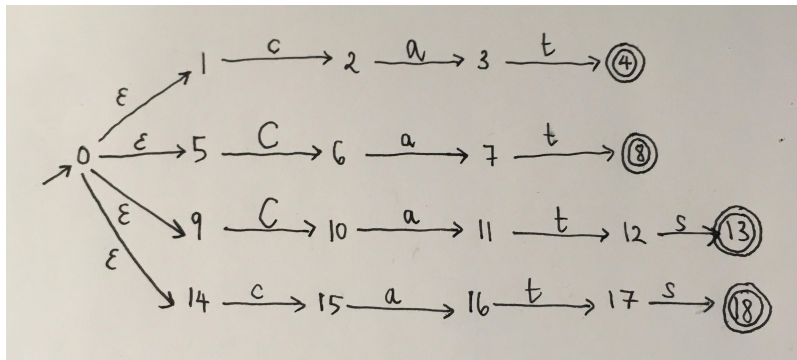 1 c 2 a 3 t 4
0 ε ε 5 C 6 a 7 t 8
ε 9 C 10 a 11 t 12 s 13
ε 14 c 15 a 16 t 17 s 18